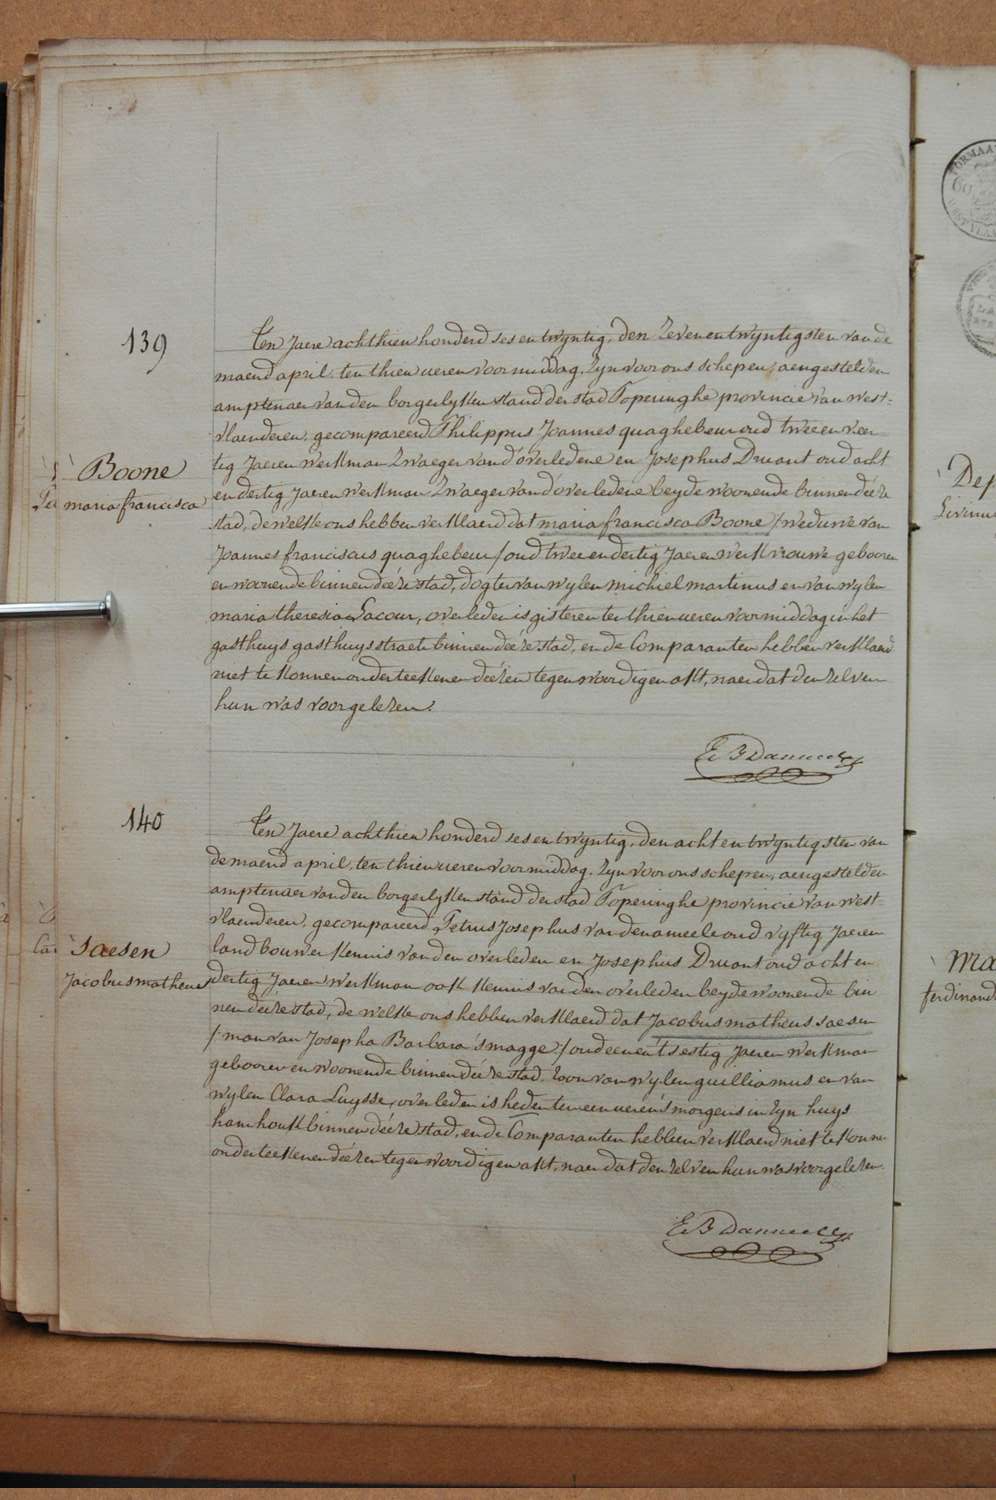 139
Ten Jaere achthien honderd ses en twyntig, den Zeven en twyntigsten van de
maend april, ten thien ueren voormiddag, Zyn voor ons schepen, aengestelden
amptenaer van den borgerlyken stand der stad Poperinghe provincie van West-
vlaenderen, gecompareerd Philippus Joannes quaghebeur oud twee en veer
tig Jaeren Werkman Zwaeger van d'overledene en Josephus Druant oud acht
en dertig Jaeren Werkman Zwaeger van d'overledene beyde woonende binnen deéze
stad, de welke ons hebben verklaerd dat maria francisca Boone / weduwe van
Joannes franciscus quaghebeur / oud twee en dertig Jaeren Werkvrouwe gebooren
en woonende binnen deéze stad, dogter van wylen michiel martinus en van wylen
maria theresia Lacour, overleden is gisteren ten thien ueren voormiddag in het
gasthuys gasthuys straete binnen deéze stad, en de Comparanten hebben verklaerd
niet te konnen onderteekenen deézen tegenwoordigen akt, naer dat den zelven
hun was voorgelezen.
Boone
maria francisca
E B Danneel
140
Ten Jaere achthien honderd ses en twyntig, den acht en twyntigsten van
de maend april, ten thien ueren voormiddag, Zyn voor ons schepen, aengestelden
amptenaer van den borgerlyken stand der stad Poperinghe provincie van West-
vlaenderen, gecompareerd Petrus Josephus vandenameele oud vyftig Jaeren
landbouwer Kennis van den overleden en Josephus Druant oud acht en
dertig Jaeren Werkman ook Kennis van den overleden beyde woonende bin
nen deéze stad, de welke ons hebben verklaerd dat Jacobus matheus saesen
/ man van Josepha Barbara smagge / oud een en t'sestig Jaeren Werkman
gebooren en woonende binnen deéze stad, Zoon van wylen guilliamus en van
wylen Clara Luysse, overleden is heden ten een ueren 's morgens in Zyn huys
hamhoek binnen deéze stad, en de Comparanten hebben verklaerd niet te konnen
onderteekenen deézen tegenwoordigen akt, naer dat den zelven hun was voorgelezen.
saesen
Jacobus matheus
E B Danneel
Dep
Livinus
Ma
ferdinand